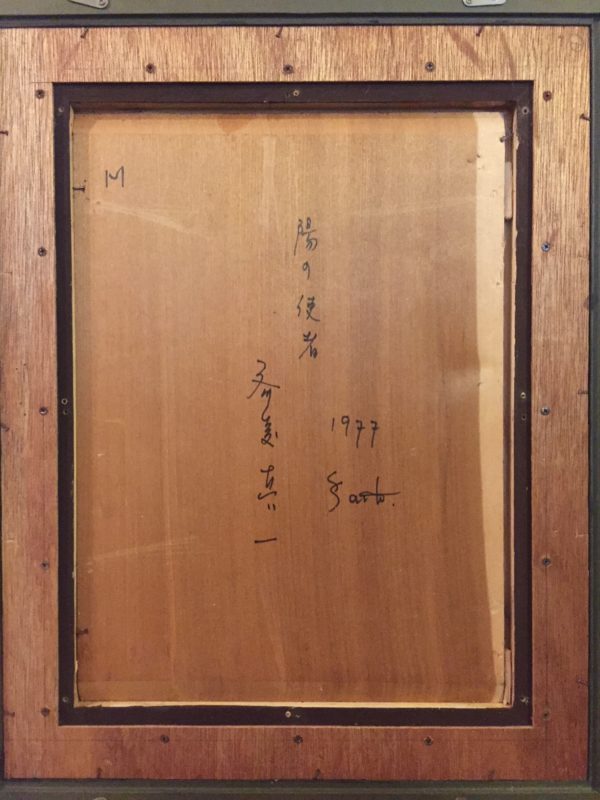 M
陽の使者
斎藤真一
1977
Saito.